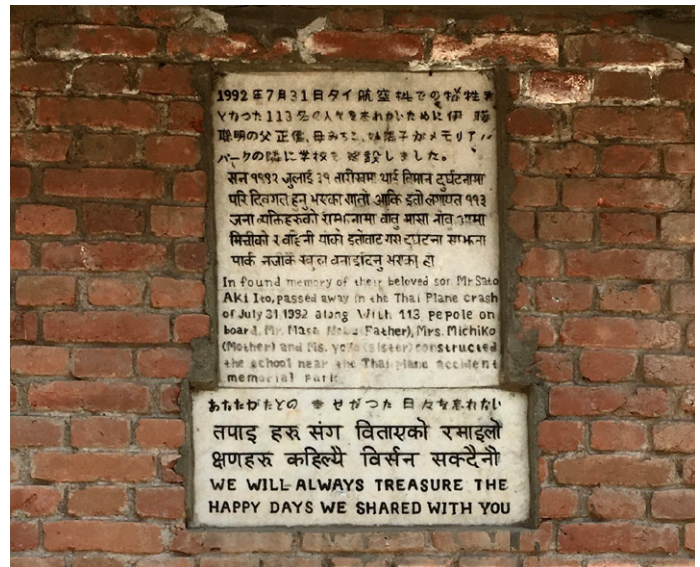 1992年7月31日タイ航空機での犠牲者
となった113名の人々を忘れないために伊藤
聡明の父正信、母みちこ、妹洋子がメモリアル
パークの隣に学校を建設しました。
सन १९९२ जुलाई ३१ तारीखमा थाई विमान दुर्घटनामा
परि दिवगत हुनु भएका सातो आकि इतो लगाएत ११३
जना व्यक्तिहरुको सम्झनामा वाबु मासा नोवु आमा
मित्तीको र वहिनी योको इतोवाट यस दुर्घटना सम्झना
पार्क नजीकै स्कुल वनाईदिनु भएको हो
In found memory of their beloved son Mr Sato
Aki Ito, passed away in the Thai Plane crash
of July 31 1992 along With 113 pepole on
board. Mr. Masa Nobu (Father), Mrs. Michiko
(Mother) and Ms. yoko (sister) constructed
the school near the Thai plane accident
memorial Park
あなたがたとの 幸せだった日々を忘れない
तपाइ हरु संग विताएको रमाइलो
क्षणहरु कहिल्यै विर्सन सक्दैनौ
WE WILL ALWAYS TREASURE THE
HAPPY DAYS WE SHARED WITH YOU